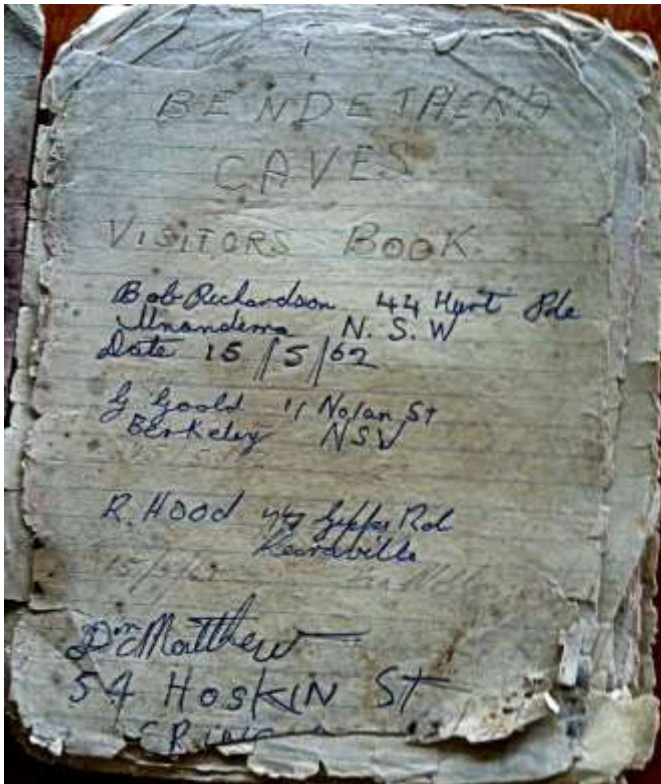 BENDETHERA
CAVES
VISITORS BOOK
Bob Richardson 44 Hurt Pde
Unanderra N.S.W
Date 15/5/62
G Goold 11 Nolan St
Berkeley NSW
R. HOOD Gipps Rd
Keiraville
15/5/62
Don Matthew
54 HOSKIN St